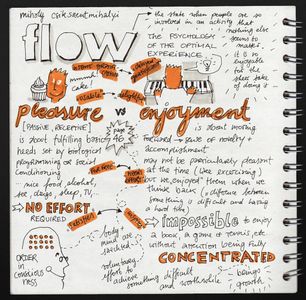 mihaly csikszentmihalyi
flow
the state when people are so
involved in an activity that
nothing else
seems to
matter.
it is so
enjoyable
for the sheer
sake of
doing it
THE PSYCHOLOGY
OF THE OPTIMAL
EXPERIENCE
mmmh!
cake
pleasure vs enjoyment
[PASSIVE, RECEPTIVE]
is about fulfilling basic
needs set by biological
programming or social
conditioning
nice food, alcohol,
sex, drugs, sleep
page
46
is about moving
forward → sense of novelty +
accomplishment
may not be particularly pleasant
at the time (like exercising)
but we enjoyed them when we
think back
something difficult and having
a hard time)
NO EFFORT
REQUIRED
impossible to enjoy
a book, a game of tennis, etc
without attention being fully
CONCENTRATED
ORDER
IN
CONSCIOUS
NESS
body/
mind are
stretched
voluntary
effort to
achieve something difficult
and worthwhile
brings
growth